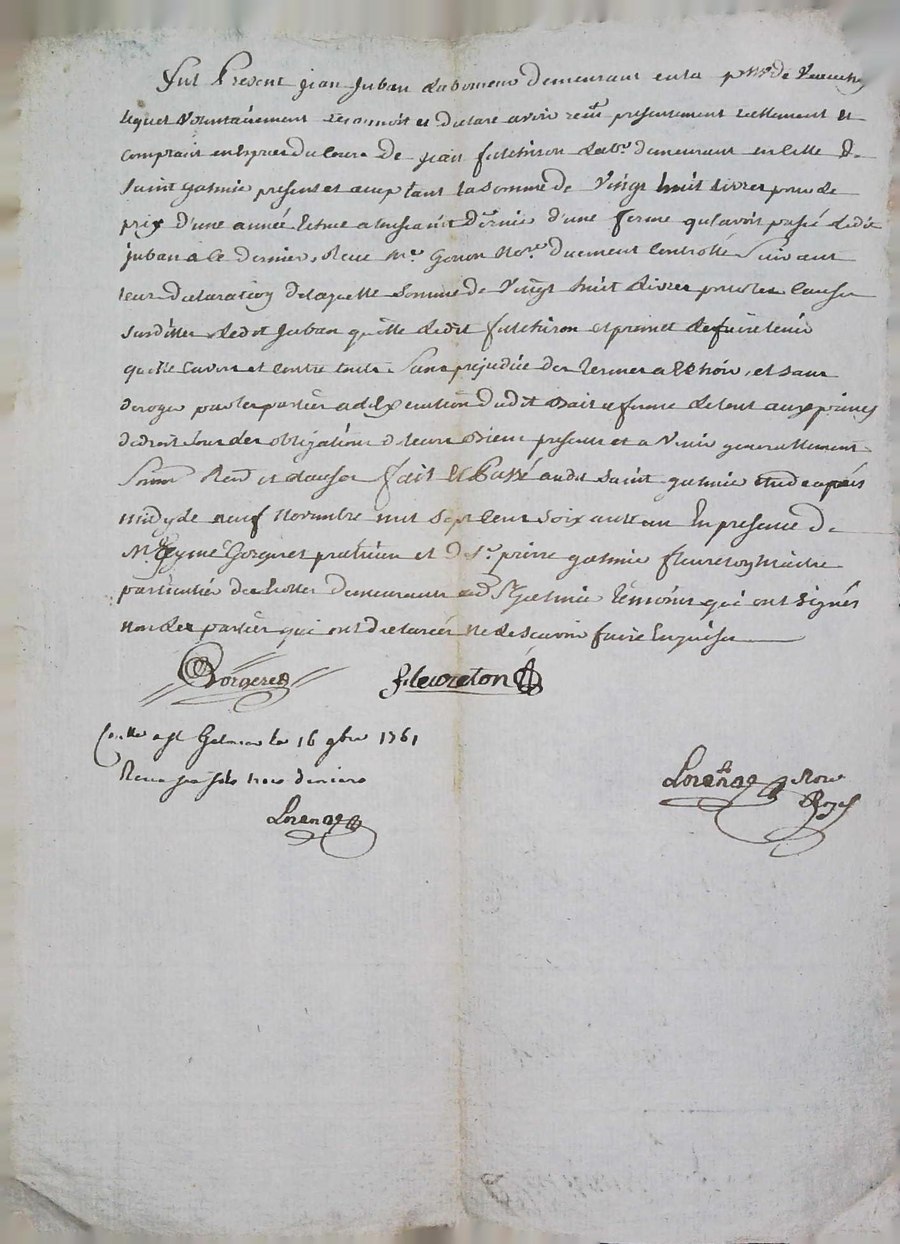 Fut Present jean Juban Laboureur demeurant en la p^sse de
Lequel Volontairement reconnoit et declare avoir recu presentement reellement et
comptant en Especes du Cours De jean futchiron Lab^r demeurant en Ville de
Saint galmie present et aceptant la somme De Vingt huit livres pour Le
prix d'une année Echue a la d^erniere d'une ferme qu'avoit passé Ledit
juban a Ce Dernier, Reçue M^e Gonon No^re Duement Controllé Suivant
leur declaration delaquelle somme de Vingt huit livres pour les Causes
Susdittes Ledit Juban quitte Ledit futchiron et promet Le faire tenir
quitte Envers et Contre touts Sans prejudice des termes a Echoir, et sans
deroger par les parties a l'Execution dudit Bail a ferme Le tout aux peines
de droit sous les obligations de leurs Biens presents et a Venir generallement
Soum Ren et clauses fait Et Passé audit Saint galmie Etude apres
midy Le neuf Novembre mil sept Cent soixante un En presence De
M^e Gorgeret praticien et De S^r pierre galmie fleureton Maitre
particulier demeurants aud S^t Galmie temoins qui ont signés
non Les parties qui ont declarées ne Le scavoir faire Enquises
Gorgeret fleureton
Con^llé a S^t Galmier le 16 9bre 1761
Reçu six sols trois deniers
Lorange Nore
Royal
Lorange